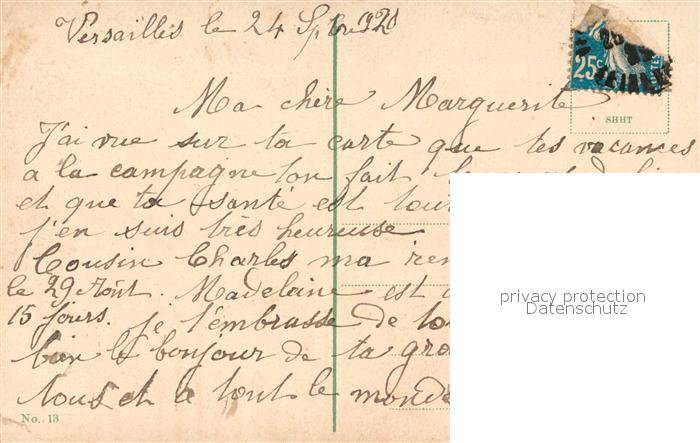 Versailles le 24 Spbre 1920
25c
SHHT
Ma chère Marguerite
J'ai vue sur ta carte que tes vacances
a la campagne ton fait
et que ta santé est tout
j'en suis très heureuse
Cousin Charles ma
le 29 Août. Madelaine est
15 jours. je t'embrasse de
bien le bonjour de ta
tous et a tout le monde
No. 13
privacy protection
Datenschutz